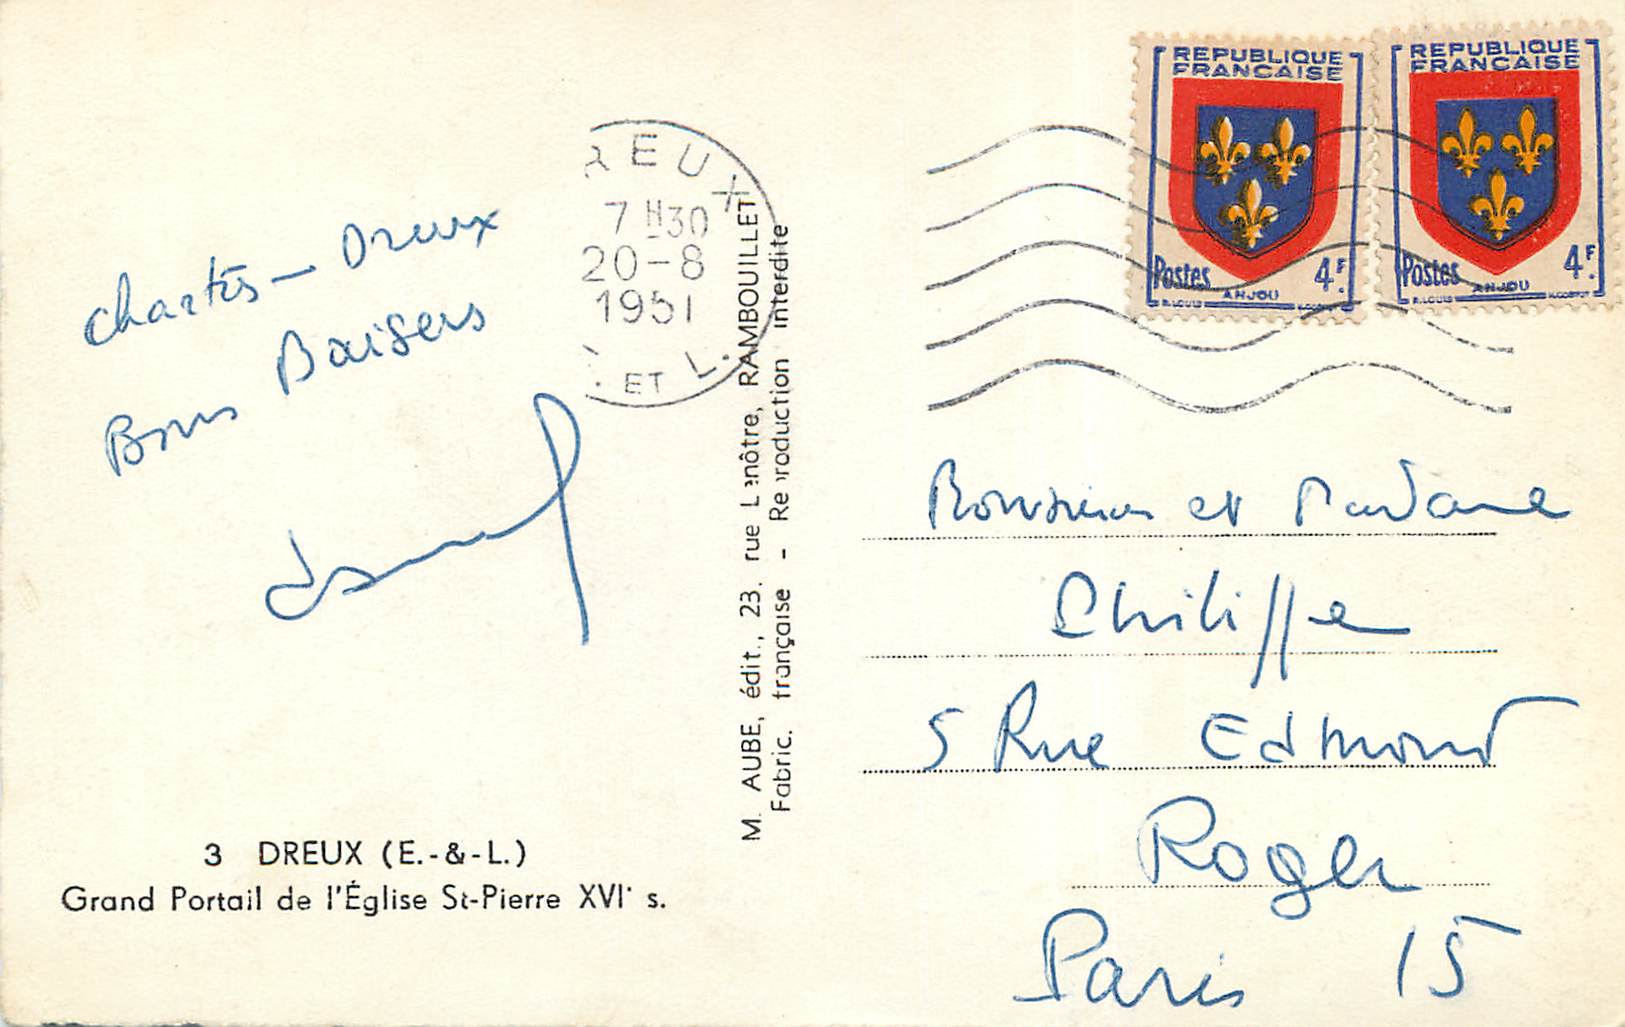 REPUBLIQUE
FRANCAISE
Postes 4F.
ANJOU
REPUBLIQUE
FRANCAISE
Postes 4F.
ANJOU
REUX
7H30
20-8
1951
ET L.
Chartres - Dreux
Bons Baisers
M. AUBE, édit., 23. rue Lenôtre, RAMBOUILLET
Fabric. française - Reproduction interdite
Monsieur et Madame
Philippe
5 Rue Edmond
Roger
Paris 15
3 DREUX (E.-&-L.)
Grand Portail de l'Église St-Pierre XVIe s.